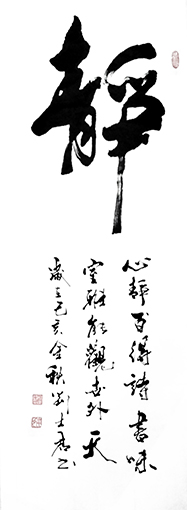 靜
心靜得詩書味
室雅能觀世外天
歲在己亥金秋劉士書